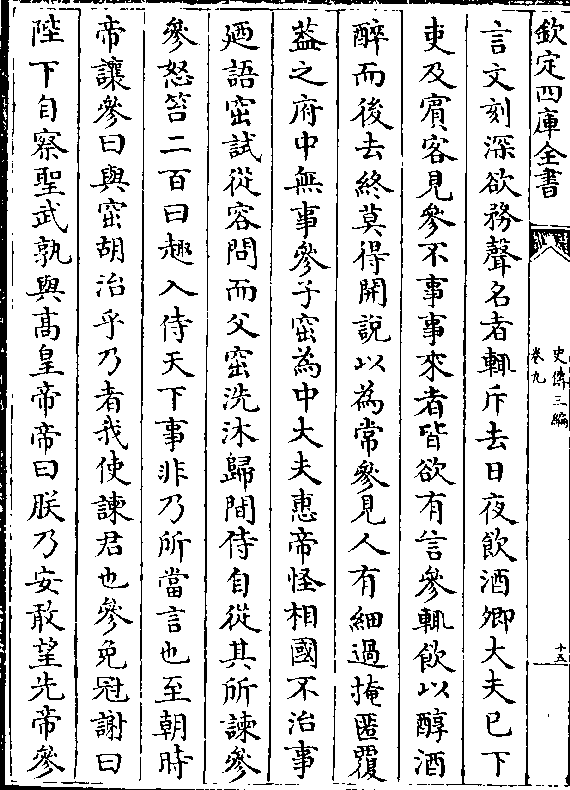 欽定四庫全書
史傳三編
卷九
十五
言文刻深欲務聲名者輒斥去日夜飲酒卿大夫已下
吏及賓客見參不事事來者皆欲有言參輒飲以醇酒
醉而後去終莫得開說以為常參見人有細過掩匿覆
葢之府中無事參子窋為中大夫惠帝怪相國不治事
廼語窋試從容問而父窋洗沐歸間侍自從其所諫參
參怒笞二百曰趣入侍天下事非乃所當言也至朝時
帝讓參曰與窋胡治乎乃者我使諫君也參免冠謝曰
陛下自察聖武孰與髙皇帝帝曰朕乃安敢望先帝參